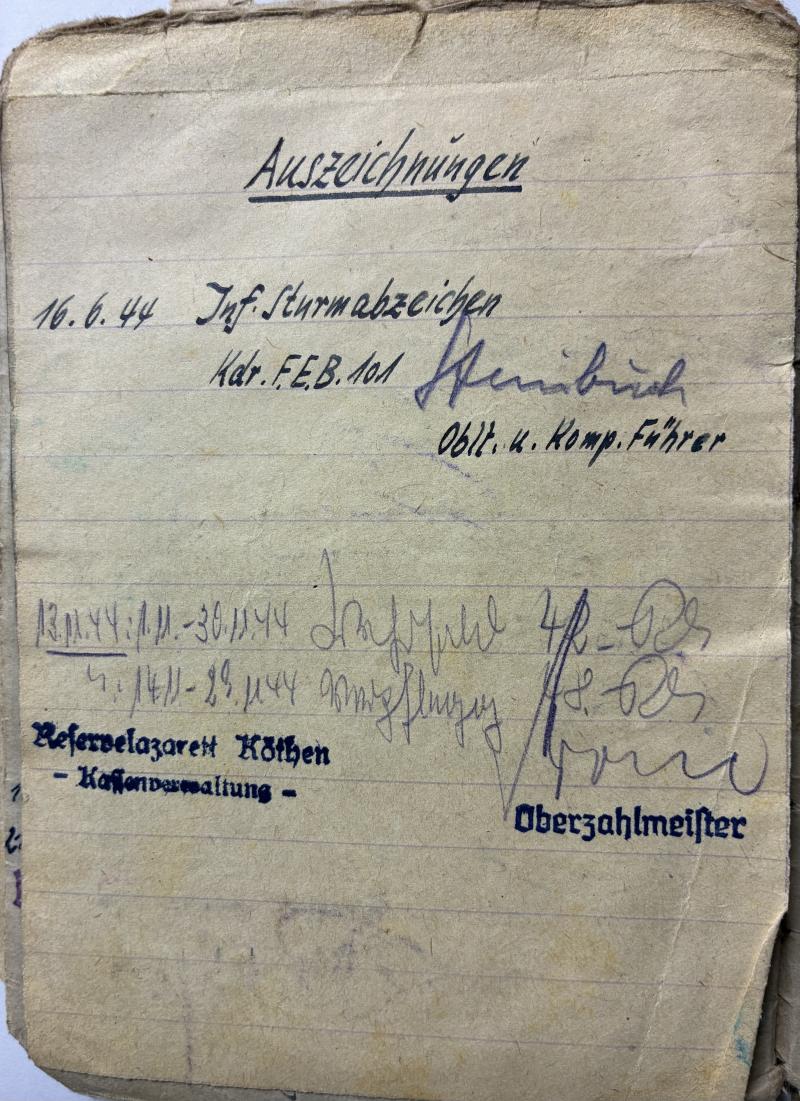 Auszeichnungen
16.6.44 Inf. Sturmabzeichen
Kdr. F.E.B. 101 Steinbüch
Oblt. u. Komp. Führer
13.11.44: 1.11.-30.11.44 Wehrsold 42.-
14.11-29.11.44 48.-
Reservelazarett Köthen
- Kassenverwaltung -
Oberzahlmeister